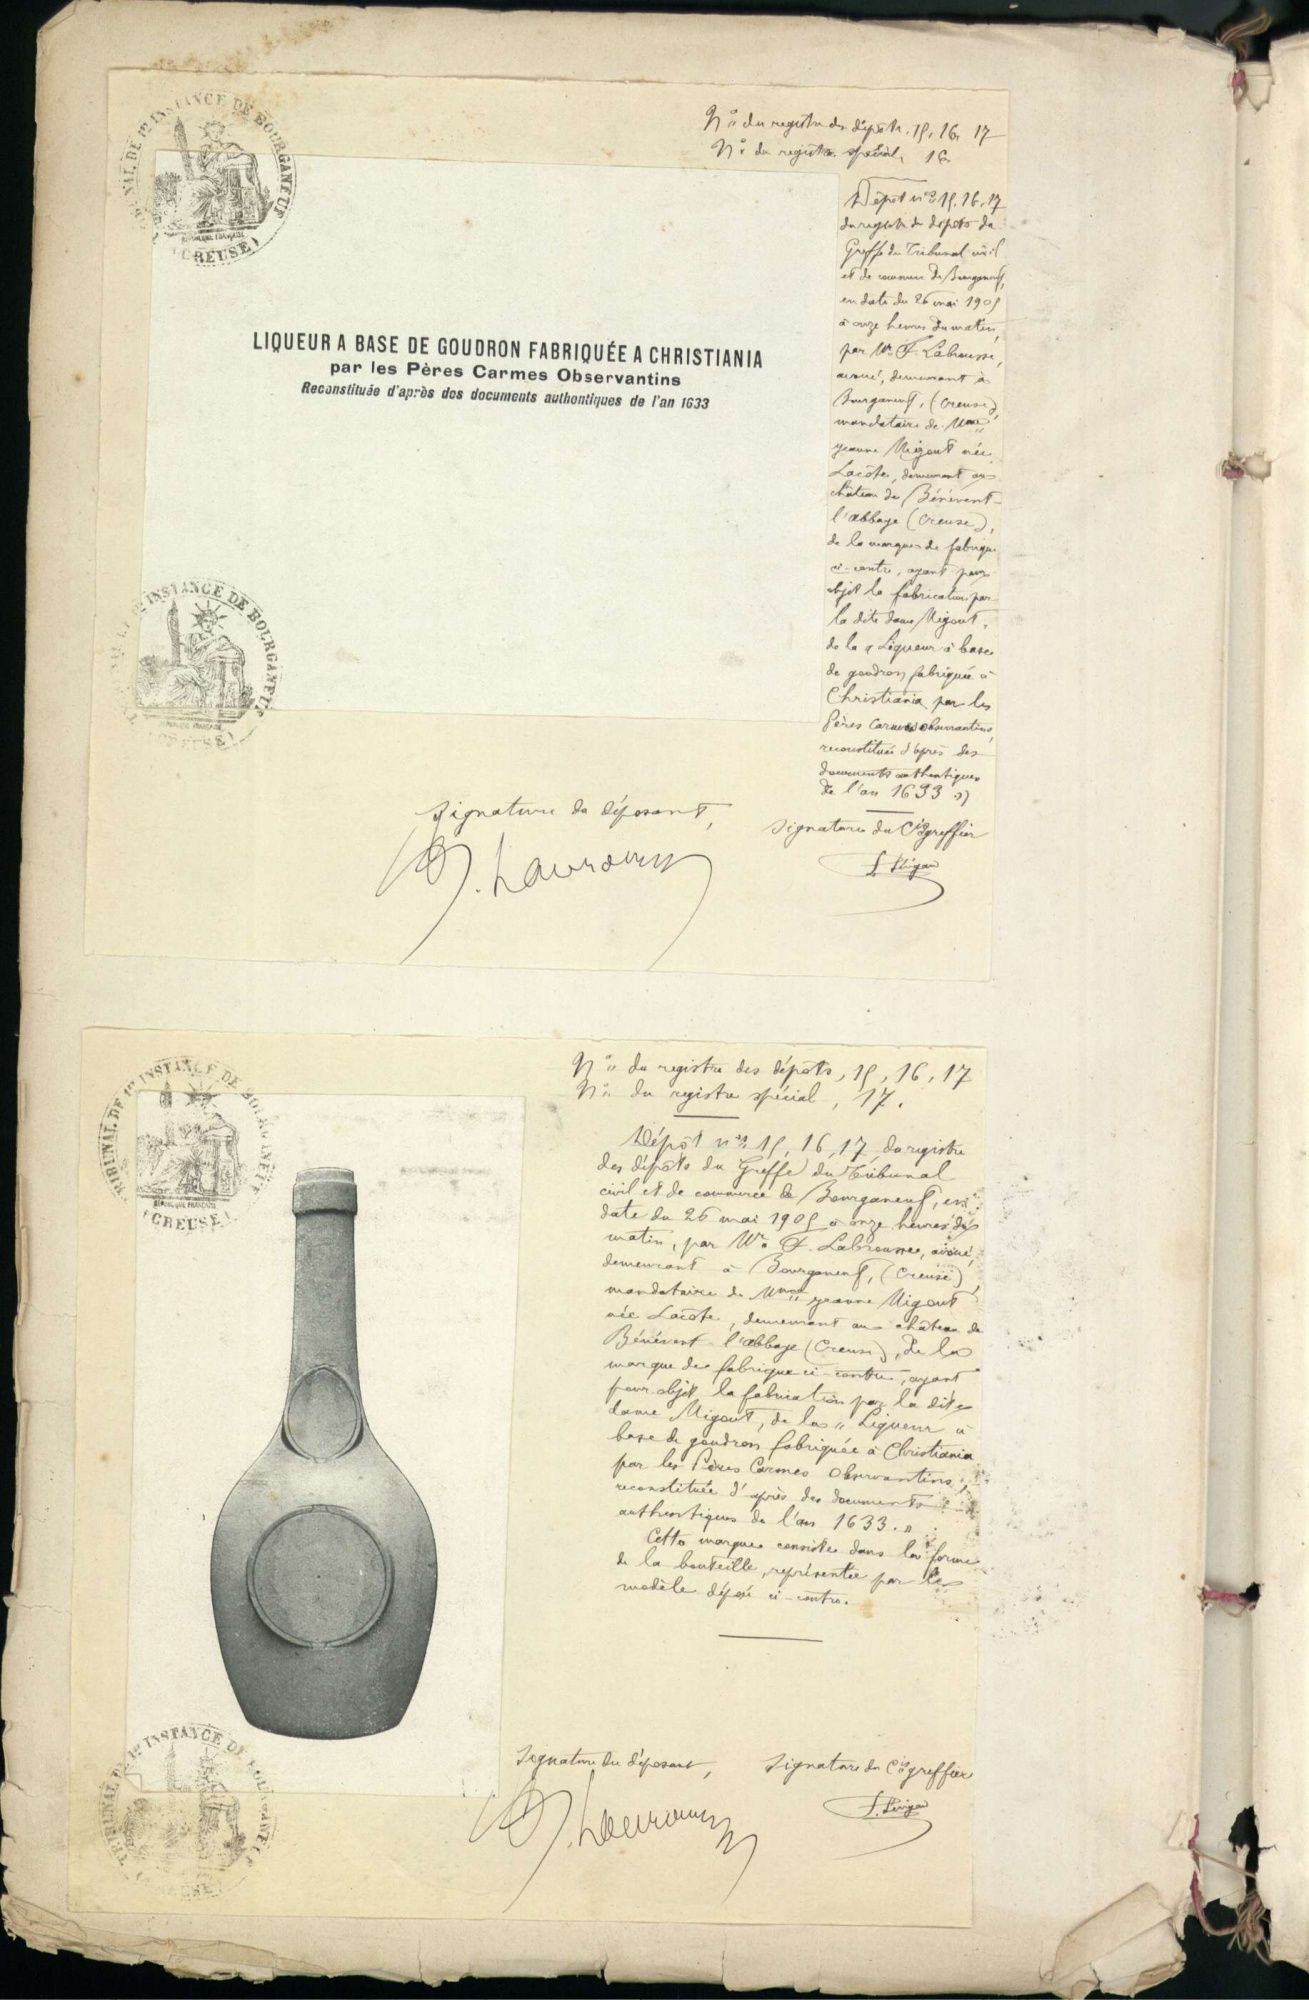 TRIBUNAL DE 1re INSTANCE DE BOURGANEUF
RÉPUBLIQUE FRANÇAISE
(CREUSE)
Nos du registre des dépôts, 15, 16, 17
No du registre spécial, 16
LIQUEUR A BASE DE GOUDRON FABRIQUÉE A CHRISTIANIA
par les Pères Carmes Observantins
Reconstituée d'après des documents authentiques de l'an 1633
Dépôt nos 15, 16, 17
du registre des dépôts du
Greffe du Tribunal civil
et de commerce de Bourganeuf,
en date du 26 mai 1905
à onze heures du matin,
par Me F. Labrousse,
avoué, demeurant à
Bourganeuf, (Creuse),
mandataire de Mme
Jeanne Migout née
Lacôte, demeurant au
château de Bénévent-
l'abbaye (Creuse),
de la marque de fabrique
ci-contre, ayant pour
objet la fabrication par
la dite dame Migout,
de la « Liqueur à base
de goudron fabriquée à
Christiania par les
Pères Carmes observantins,
reconstituée d'après des
documents authentiques
de l'an 1633 »
TRIBUNAL DE 1re INSTANCE DE BOURGANEUF
RÉPUBLIQUE FRANÇAISE
(CREUSE)
Signature du déposant,
Signature du Cis greffier
TRIBUNAL DE 1re INSTANCE DE BOURGANEUF
RÉPUBLIQUE FRANÇAISE
(CREUSE)
Nos du registre des dépôts, 15, 16, 17
No du registre spécial, 17.
Dépôt nos 15, 16, 17, du registre
des dépôts du Greffe du Tribunal
civil et de commerce de Bourganeuf, en
date du 26 mai 1905 à onze heures du
matin, par Me F. Labrousse, avoué,
demeurant à Bourganeuf, (Creuse),
mandataire de Mme Jeanne Migout
née Lacôte, demeurant au château de
Bénévent-l'abbaye (Creuse), de la
marque de fabrique ci-contre, ayant
pour objet la fabrication par la dite
dame Migout, de la « Liqueur à
base de goudron fabriquée à Christiania
par les Pères Carmes Observantins,
reconstituée d'après des documents
authentiques de l'an 1633. »
Cette marque consiste dans la forme
de la bouteille, représentée par le
modèle déposé ci-contre.
TRIBUNAL DE 1re INSTANCE DE BOURGANEUF
(CREUSE)
Signature du déposant,
Signature du Cis greffier